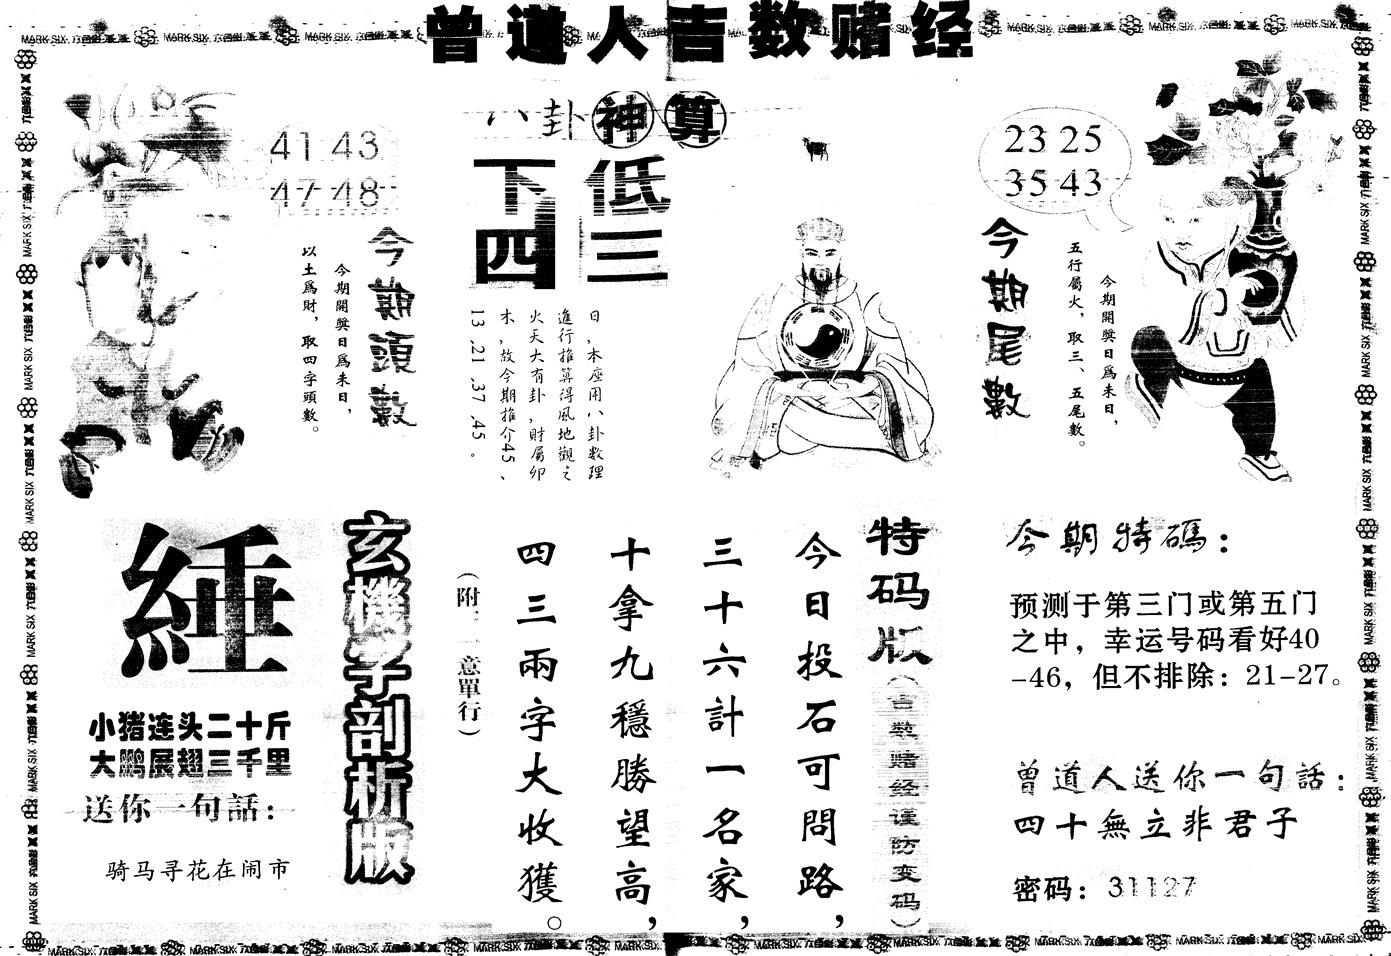 曾道人吉数赌经
八卦神算
41 43
47 48
今期頭數
今期開獎日爲未日，
以土爲財，取四字頭數。
下低
四三
日，本座用八卦数理
進行推算得風地觀之
火天大有卦，財屬卯
木，故今期推介45、
13、21、37、45。
23 25
35 43
今期尾數
今期開獎日爲未日，
五行屬火，取三、五尾數。
玄機字剖析版
小猪连头二十斤
大鹏展翅三千里
送你一句話：
骑马寻花在闹市
特码版
（吉数赌经谨防变码）
今日投石可問路，
三十六計一名家，
十拿九穩勝望高，
四三兩字大收獲。
意單行）
今期特碼：
预测于第三门或第五门
之中，幸运号码看好40
-46，但不排除：21-27。
曾道人送你一句話：
四十無立非君子
密码：31127
MARK SIX